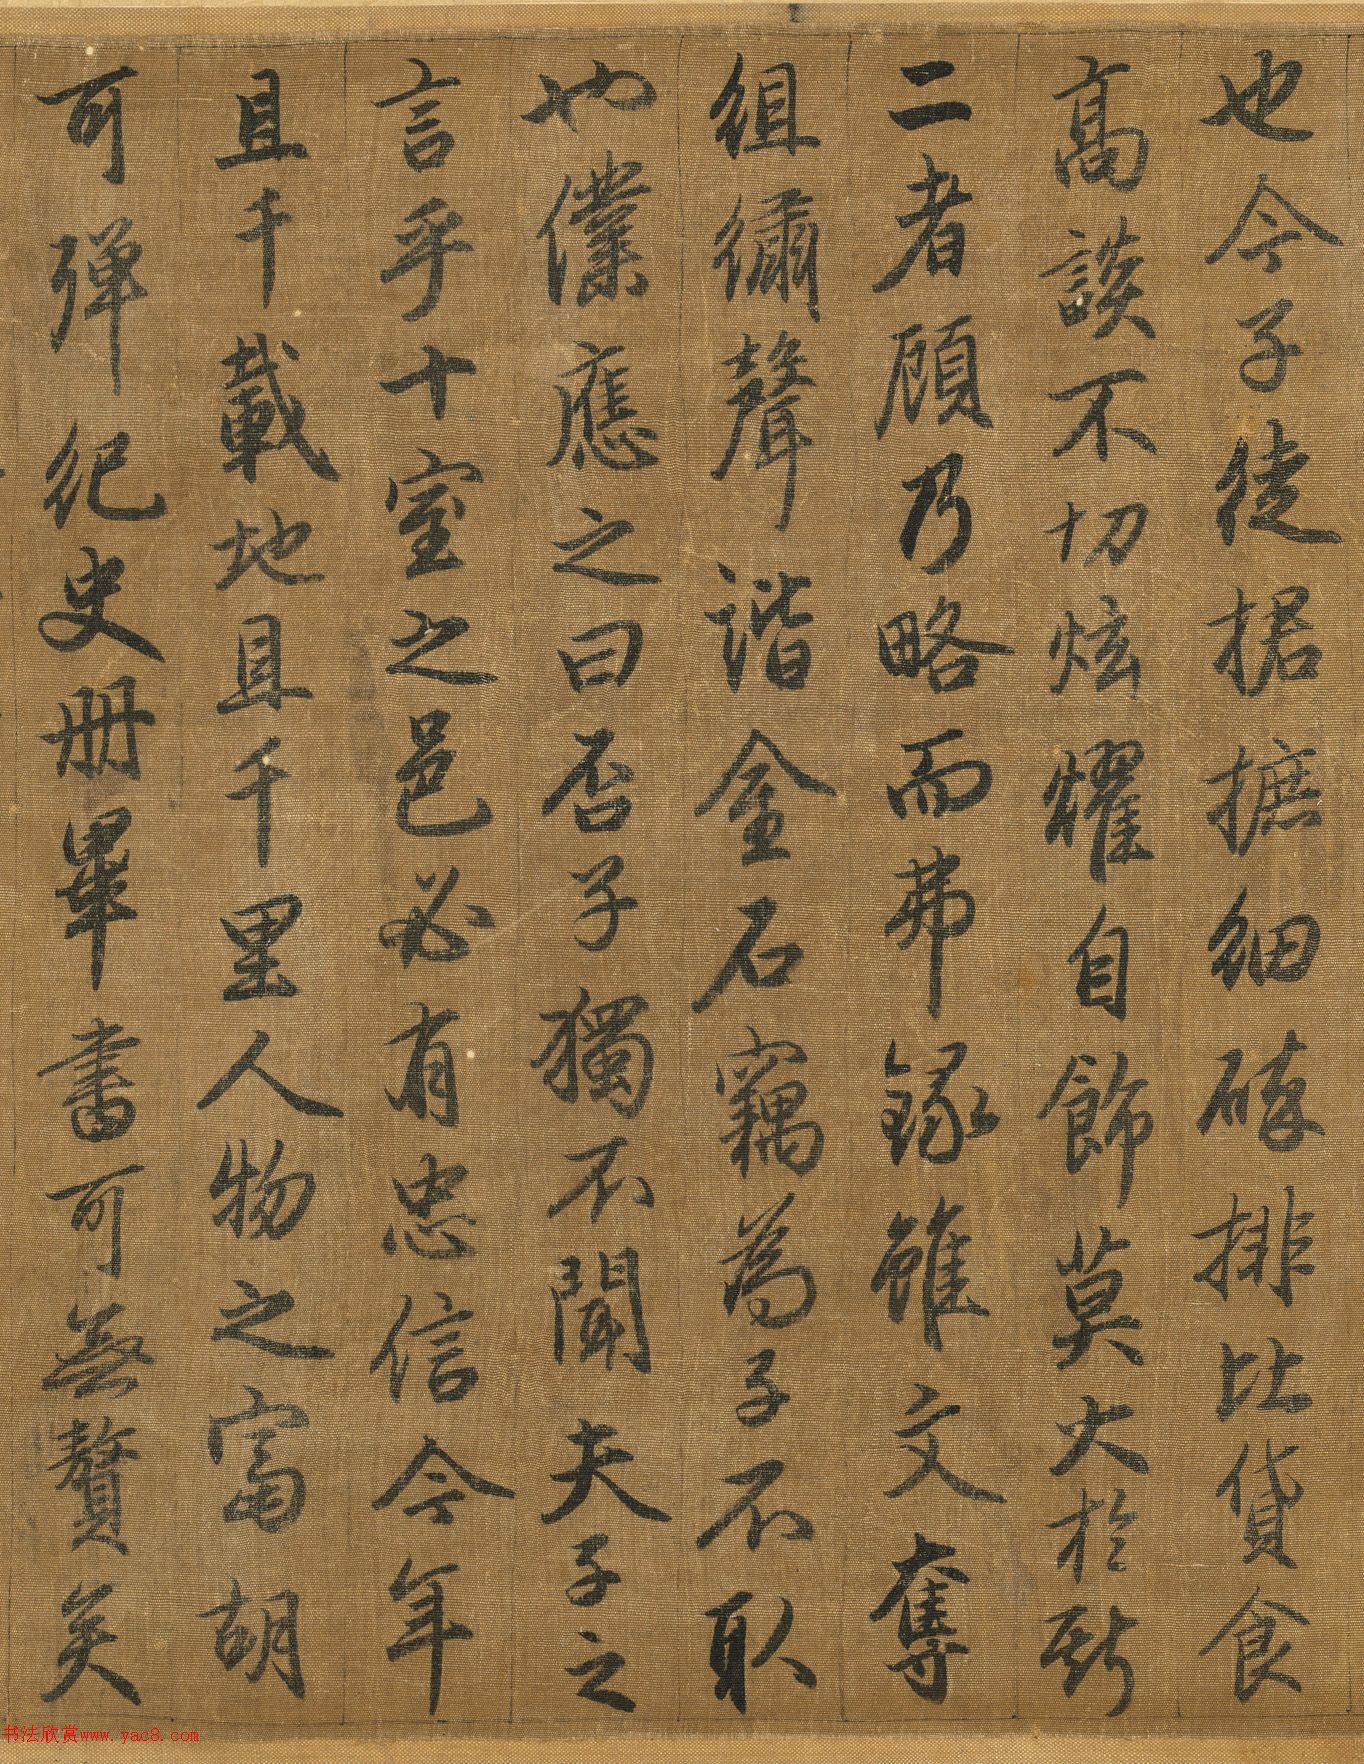 也今子徒据摭细碎排比货食
高談不切炫耀自飾莫大於斯
二者顧乃略而弗録雖文奪
組繡聲諧金石竊為子不取
也僕應之曰否子獨不聞夫子之
言乎十室之邑必有忠信今年
且千載地且千里人物之富胡
可彈紀史冊畢書可無贅矣
书法欣赏www.yac8.com